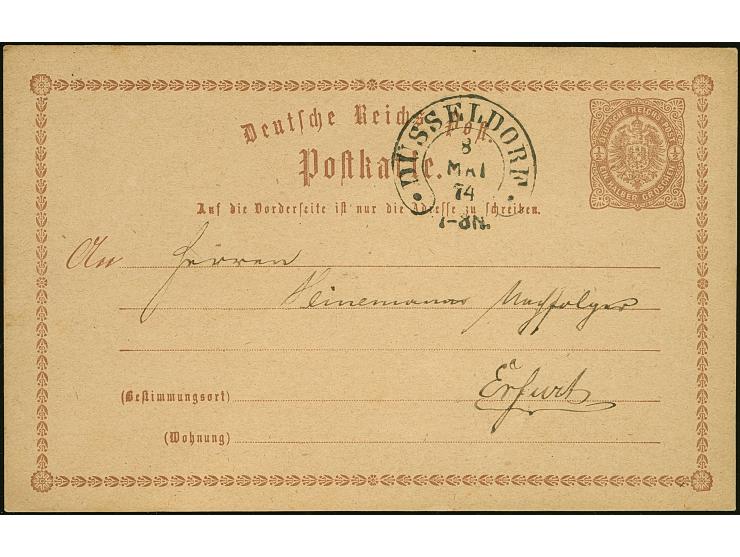 Deutsche Reichs-Post.
Postkarte.
Auf die Vorderseite ist nur die Adresse zu schreiben.
DÜSSELDORF
8
MAI
74
7-8N.
DEUTSCHE REICHS POST
EIN HALBER GROSCHEN
½ ½
An Herren
Heinemanns Nachfolger
Erfurt
(Bestimmungsort)
(Wohnung)